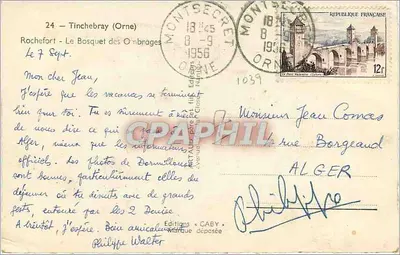 24 - Tinchebray (Orne)
Rochefort - Le Bosquet des Ombrages
Le 7 Sept.
Mon cher Jean,
J'espère que les vacances se terminent
bien pour toi. Tu es sûrement à
de nous dire ce qui
Alger, mieux que les informations
officiels. Les photos de Dormillouse
sont bonnes, particulièrement celles du
déjeuner où tu discutes avec de grands
gestes, entouré par les 2 Denise.
A bientôt, j'espère. Bien amicalement
Philippe Walter
Editions "GABY"
Marque déposée
MONTSECRET
18 H 45
8 - 9
1956
ORNE
MONTSECRET
18
8 - 9
1956
ORNE
1039
REPUBLIQUE FRANÇAISE
12f
CPAPHIL
Monsieur Jean Comas
rue Borgeaud
ALGER
Philippe